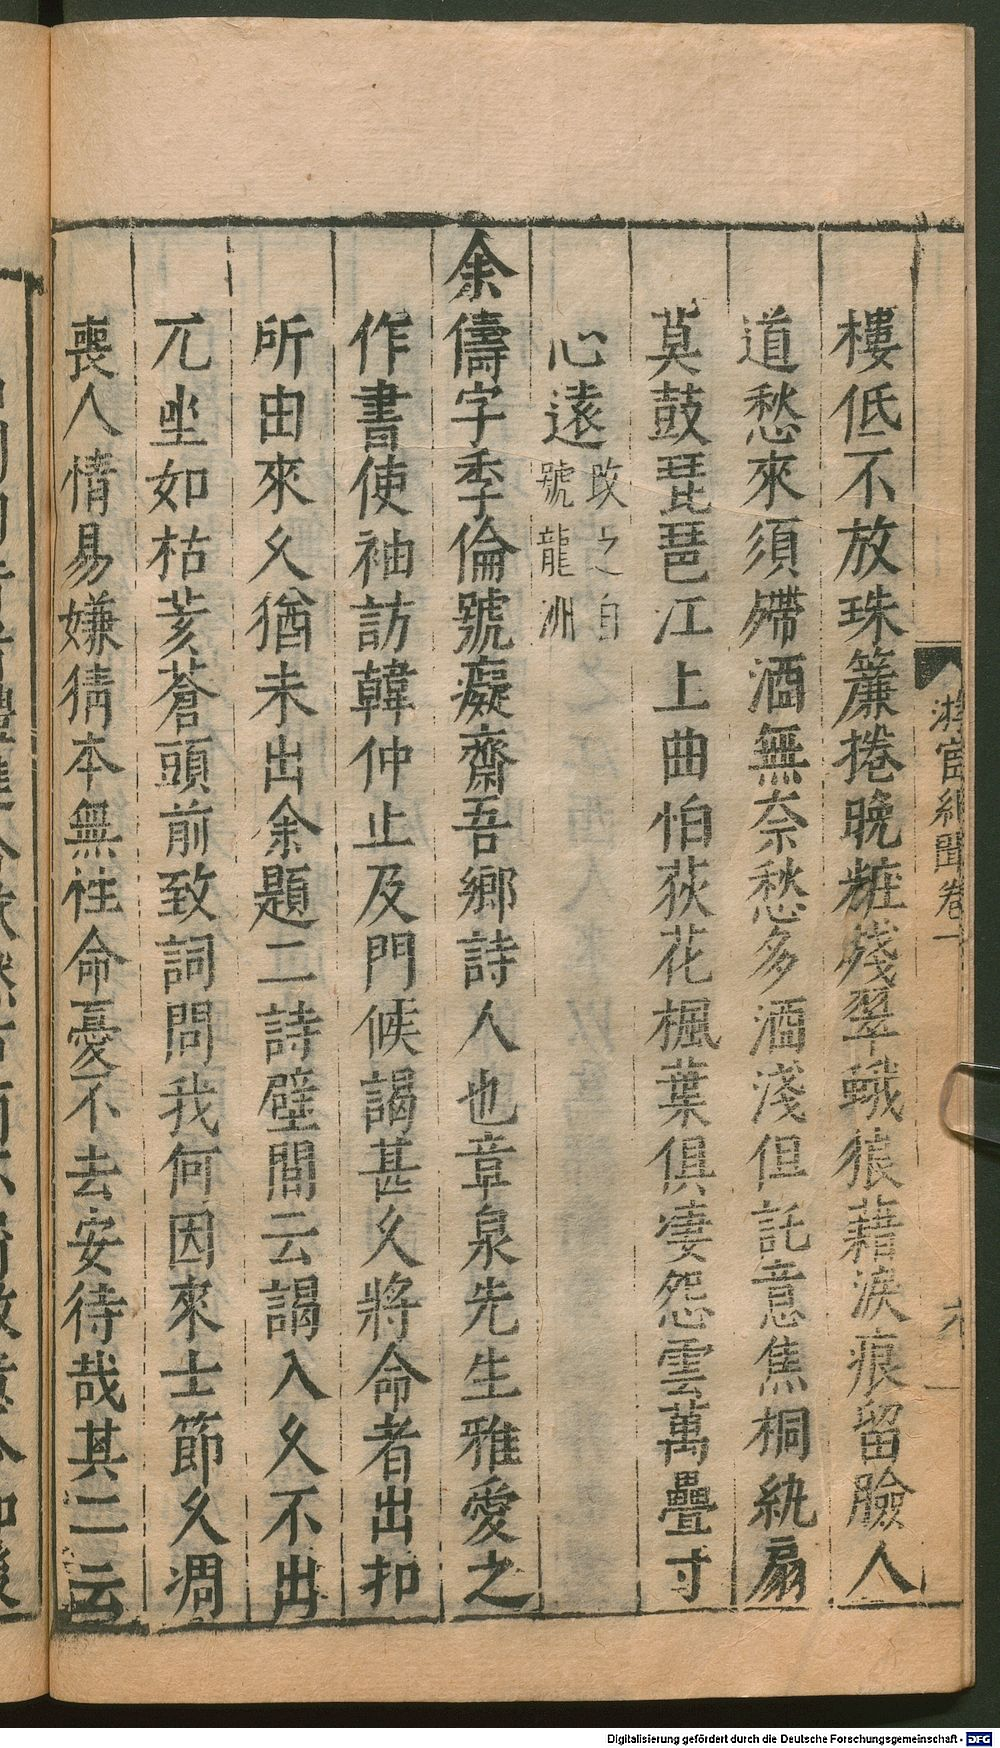 樓低不放珠簾捲晚粧殘翠蛾狼藉淚痕留臉人
道愁來須殢酒無奈愁多酒淺但託意焦桐紈扇
莫鼓琵琶江上曲怕荻花楓葉俱凄怨雲萬疊寸
心遠改之自
號龍洲
余儔字季倫號癡齋吾鄉詩人也章泉先生雅愛之
作書使袖訪韓仲止及門候謁甚久將命者出扣
所由來久猶未出余題二詩壁間云謁入久不出
兀坐如枯荄蒼頭前致詞問我何因來士節久凋
喪人情易嫌猜本無性命憂不去安待哉其二云
游宦紀聞卷一
Digitalisierung gefördert durch die Deutsche Forschungsgemeinschaft - DFG